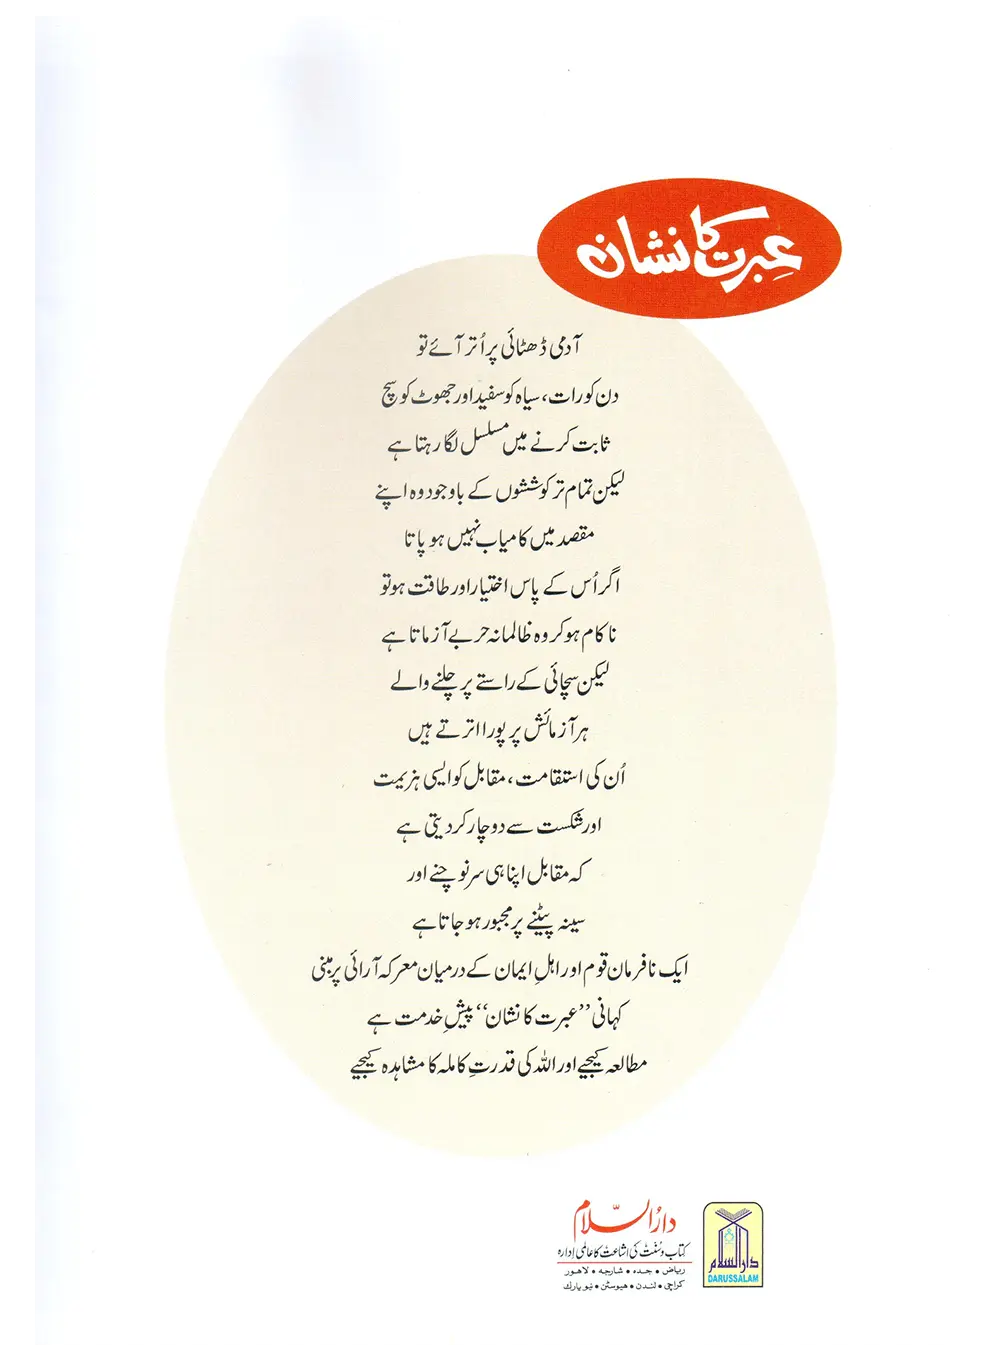 عبرت کا نشان
آدمی ڈھٹائی پر اُتر آئے تو
دن کو رات، سیاہ کو سفید اور جھوٹ کو سچ
ثابت کرنے میں مسلسل لگا رہتا ہے
لیکن تمام تر کوششوں کے باوجود وہ اپنے
مقصد میں کامیاب نہیں ہو پاتا
اگر اُس کے پاس اختیار اور طاقت ہو تو
ناکام ہو کر وہ ظالمانہ حربے آزماتا ہے
لیکن سچائی کے راستے پر چلنے والے
ہر آزمائش پر پورا اترتے ہیں
اُن کی استقامت، مقابل کو ایسی ہزیمت
اور شکست سے دوچار کر دیتی ہے
کہ مقابل اپنا ہی سر نوچنے اور
سینہ پیٹنے پر مجبور ہو جاتا ہے
ایک نافرمان قوم اور اہلِ ایمان کے درمیان معرکہ آرائی پر مبنی
کہانی ’’عبرت کا نشان‘‘ پیشِ خدمت ہے
مطالعہ کیجیے اور اللہ کی قدرتِ کاملہ کا مشاہدہ کیجیے
دارُالسّلام
کتاب و سُنّت کی اشاعت کا عالمی ادارہ
ریاض • جدہ • شارجہ • لاہور
کراچی • لندن • ہیوسٹن • نیو یارک
دارالسلام
DARUSSALAM